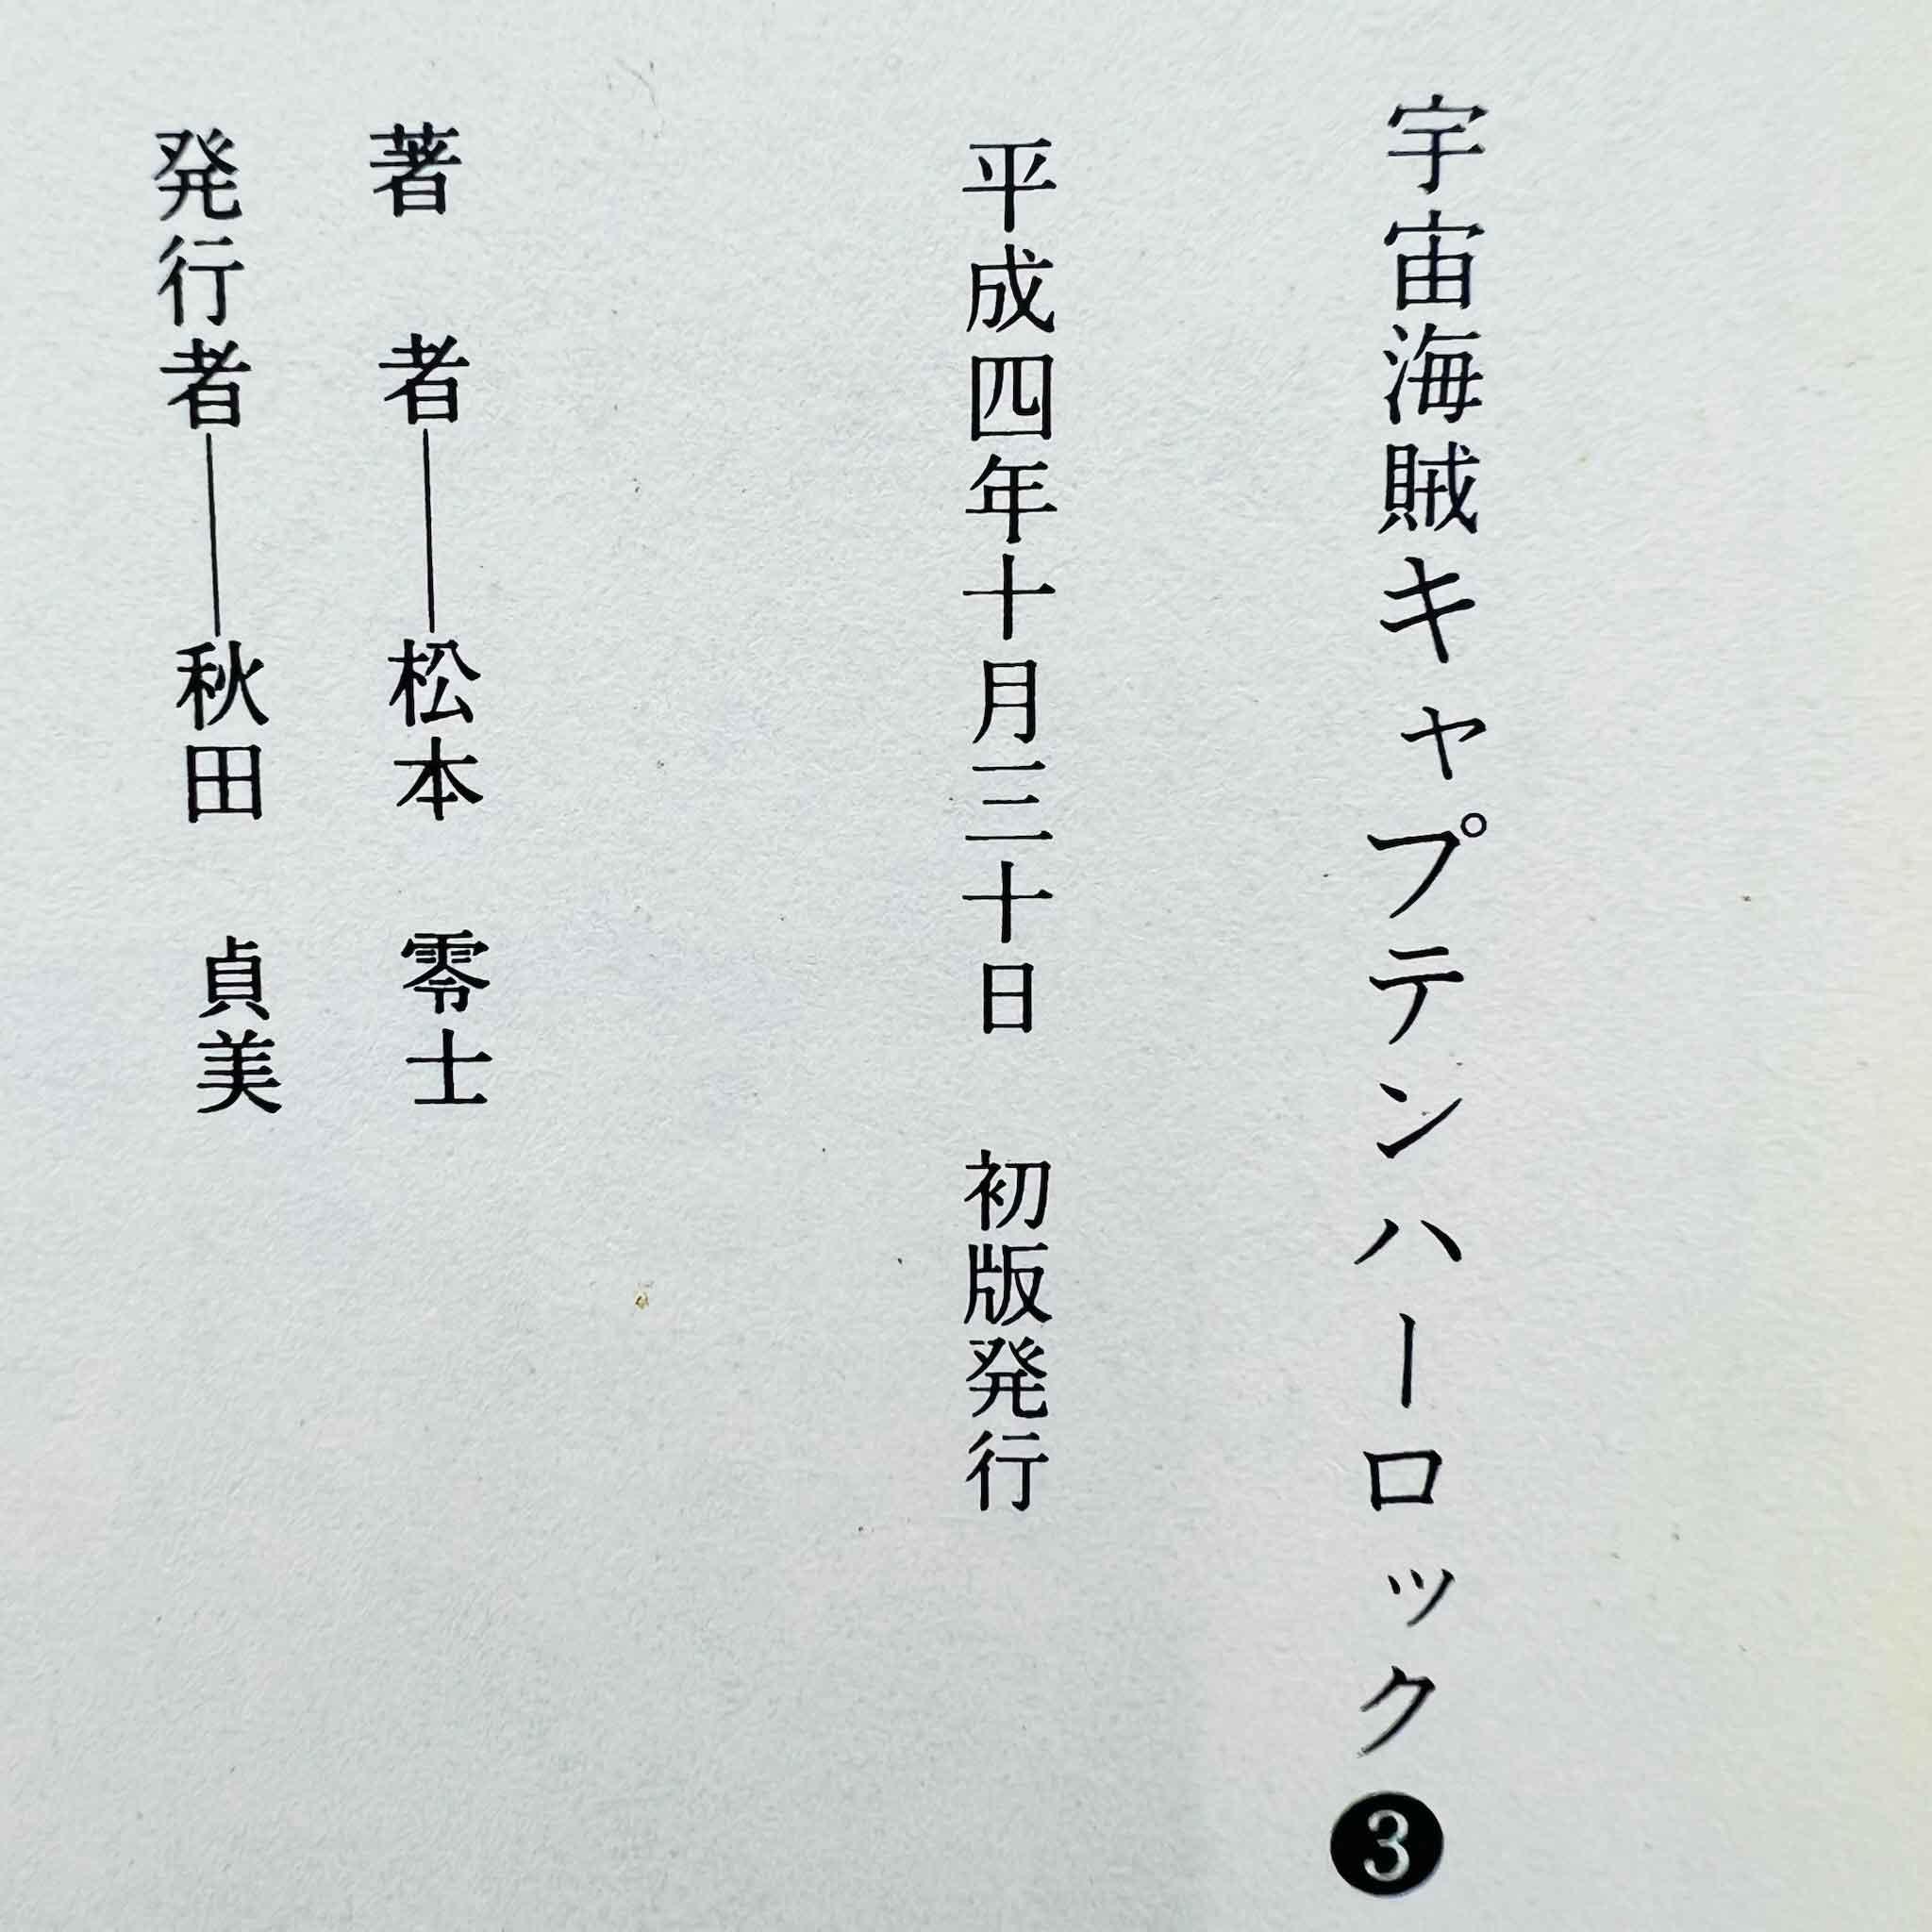 宇宙海賊キャプテンハーロック❸
平成四年十月三十日　初版発行
著　者──松本　零士
発行者──秋田　貞美